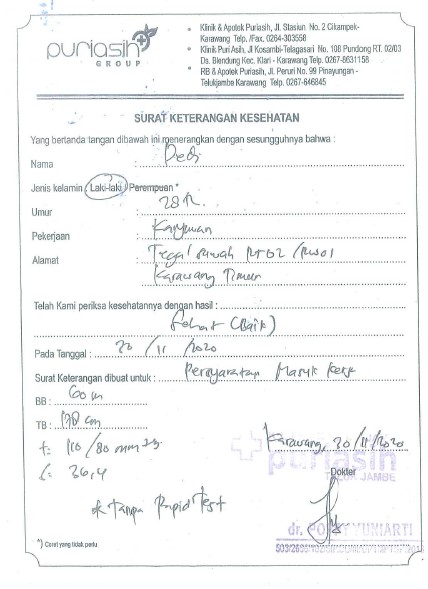 puriasih
GROUP
• Klinik & Apotek Puriasih, Jl. Stasiun No. 2 Cikampek-
Karawang Telp. /Fax, 0264-303558
• Klinik Puri Asih, Jl Kosambi-Telagasari No. 108 Pundong RT. 02/03
Ds. Blendung Kec. Klari - Karawang Telp. 0267-8631158
• RB & Apotek Puriasih, Jl. Peruri No. 99 Pinayungan -
Telukjambe Karawang Telp. 0267-646845
SURAT KETERANGAN KESEHATAN
Yang bertanda tangan dibawah ini menerangkan dengan sesungguhnya bahwa :
Nama : Dedi
Jenis kelamin (Laki-laki / Perempuan *
Umur : 28
Pekerjaan : Karyawan
Alamat : Tegal Sawah RT02 / RW01
Karawang Timur
Telah Kami periksa kesehatannya dengan hasil :
Sehat (Baik)
Pada Tanggal : 20 / 11 / 2020
Surat Keterangan dibuat untuk : Persyaratan Masuk Kerja
BB : 60
TB : 178 cm
t= 110/80 mmHg
S= 36,4
Karawang, 20/11/2020
puriasih
TELUK JAMBE
Dokter
tanpa Rapid Test
dr. YUNIARTI
*) Coret yang tidak perlu